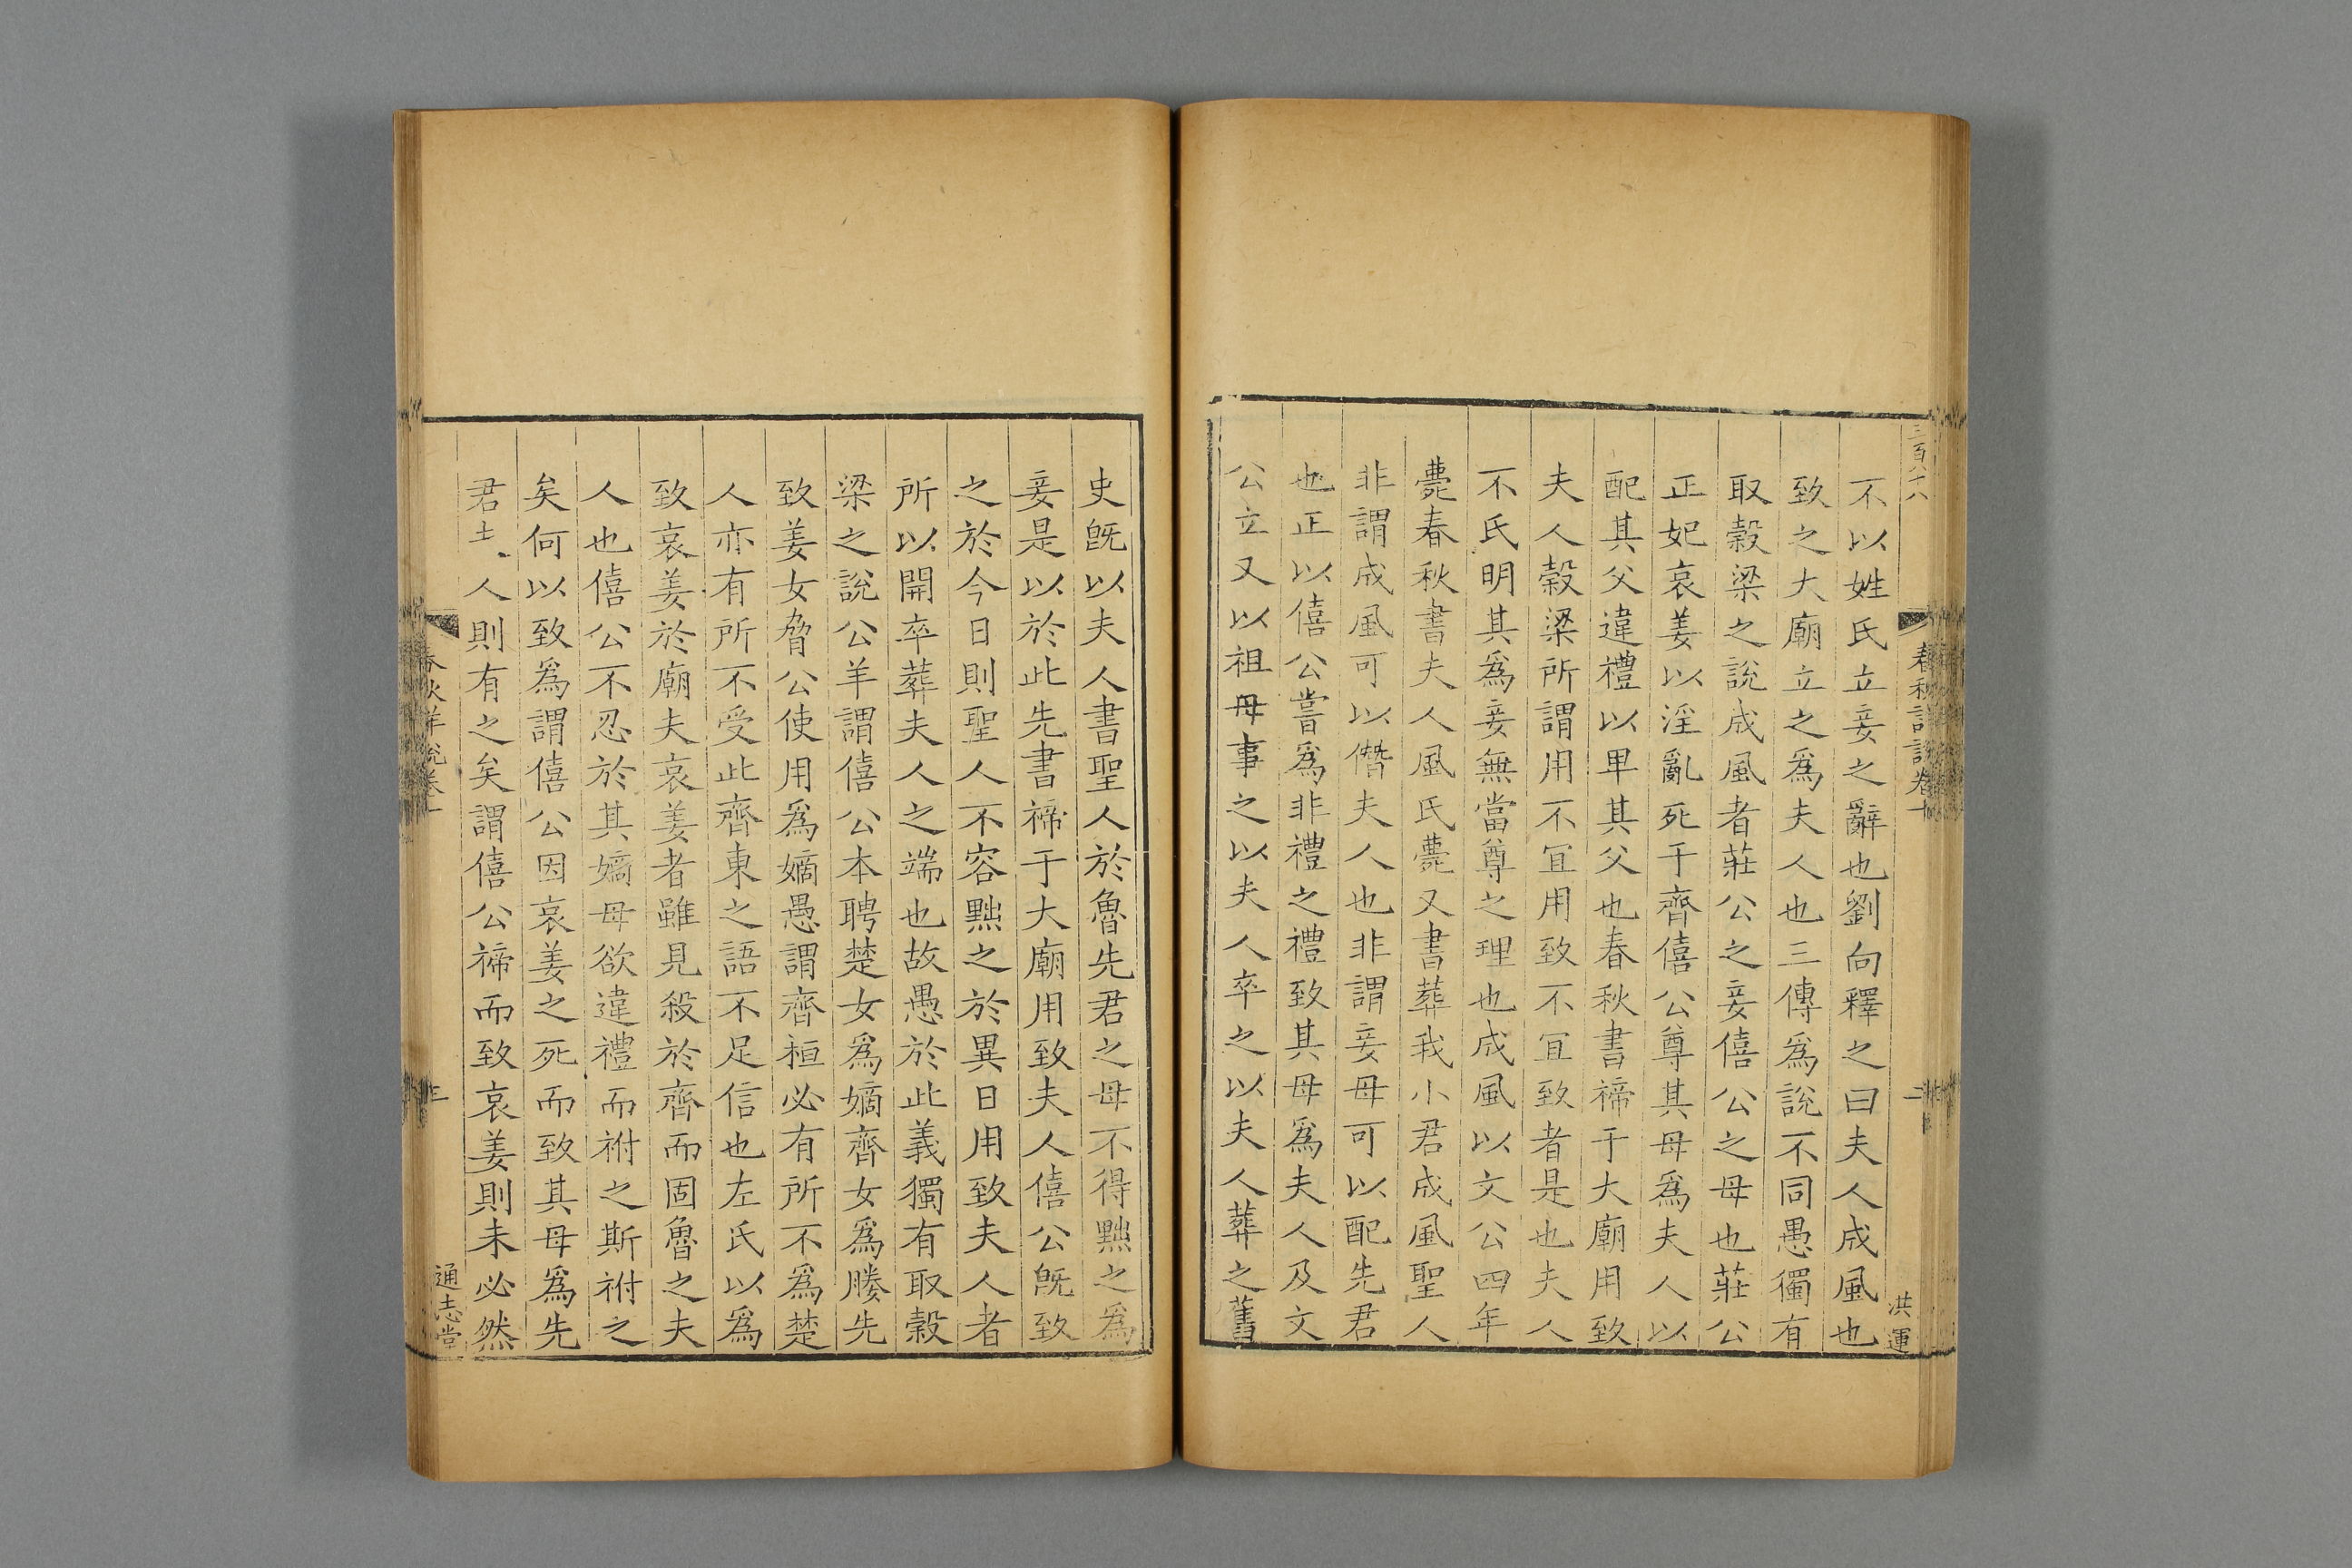 三百八十八
春秋詳說卷十
二
洪運
不以姓氏立妾之辭也劉向釋之曰夫人成風也
致之大廟立之爲夫人也三傳爲說不同愚獨有
取穀梁之說成風者莊公之妾僖公之母也莊公
正妃哀姜以淫亂死于齊僖公尊其母爲夫人以
配其父違禮以卑其父也春秋書禘于大廟用致
夫人穀梁所謂用不宜用致不宜致者是也夫人
不氏明其爲妾無當尊之理也成風以文公四年
薨春秋書夫人風氏薨又書葬我小君成風聖人
非謂成風可以僭夫人也非謂妾母可以配先君
也正以僖公嘗爲非禮之禮致其母爲夫人及文
公立又以祖母事之以夫人卒之以夫人葬之舊
史旣以夫人書聖人於魯先君之母不得黜之爲
妾是以於此先書禘于大廟用致夫人僖公旣致
之於今日則聖人不容黜之於異日用致夫人者
所以開卒葬夫人之端也故愚於此義獨有取穀
梁之說公羊謂僖公本聘楚女爲嫡齊女爲媵先
致姜女脅公使用爲嫡愚謂齊桓必有所不爲楚
人亦有所不受此齊東之語不足信也左氏以爲
致哀姜於廟夫哀姜者雖見殺於齊而固魯之夫
人也僖公不忍於其嫡母欲違禮而祔之斯祔之
矣何以致爲謂僖公因哀姜之死而致其母爲先
君人則有之矣謂僖公禘而致哀姜則未必然
春秋詳說卷十
通志堂